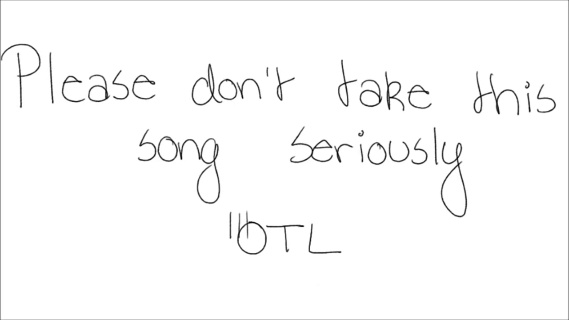 Please don't take this
song seriously
|||OTL